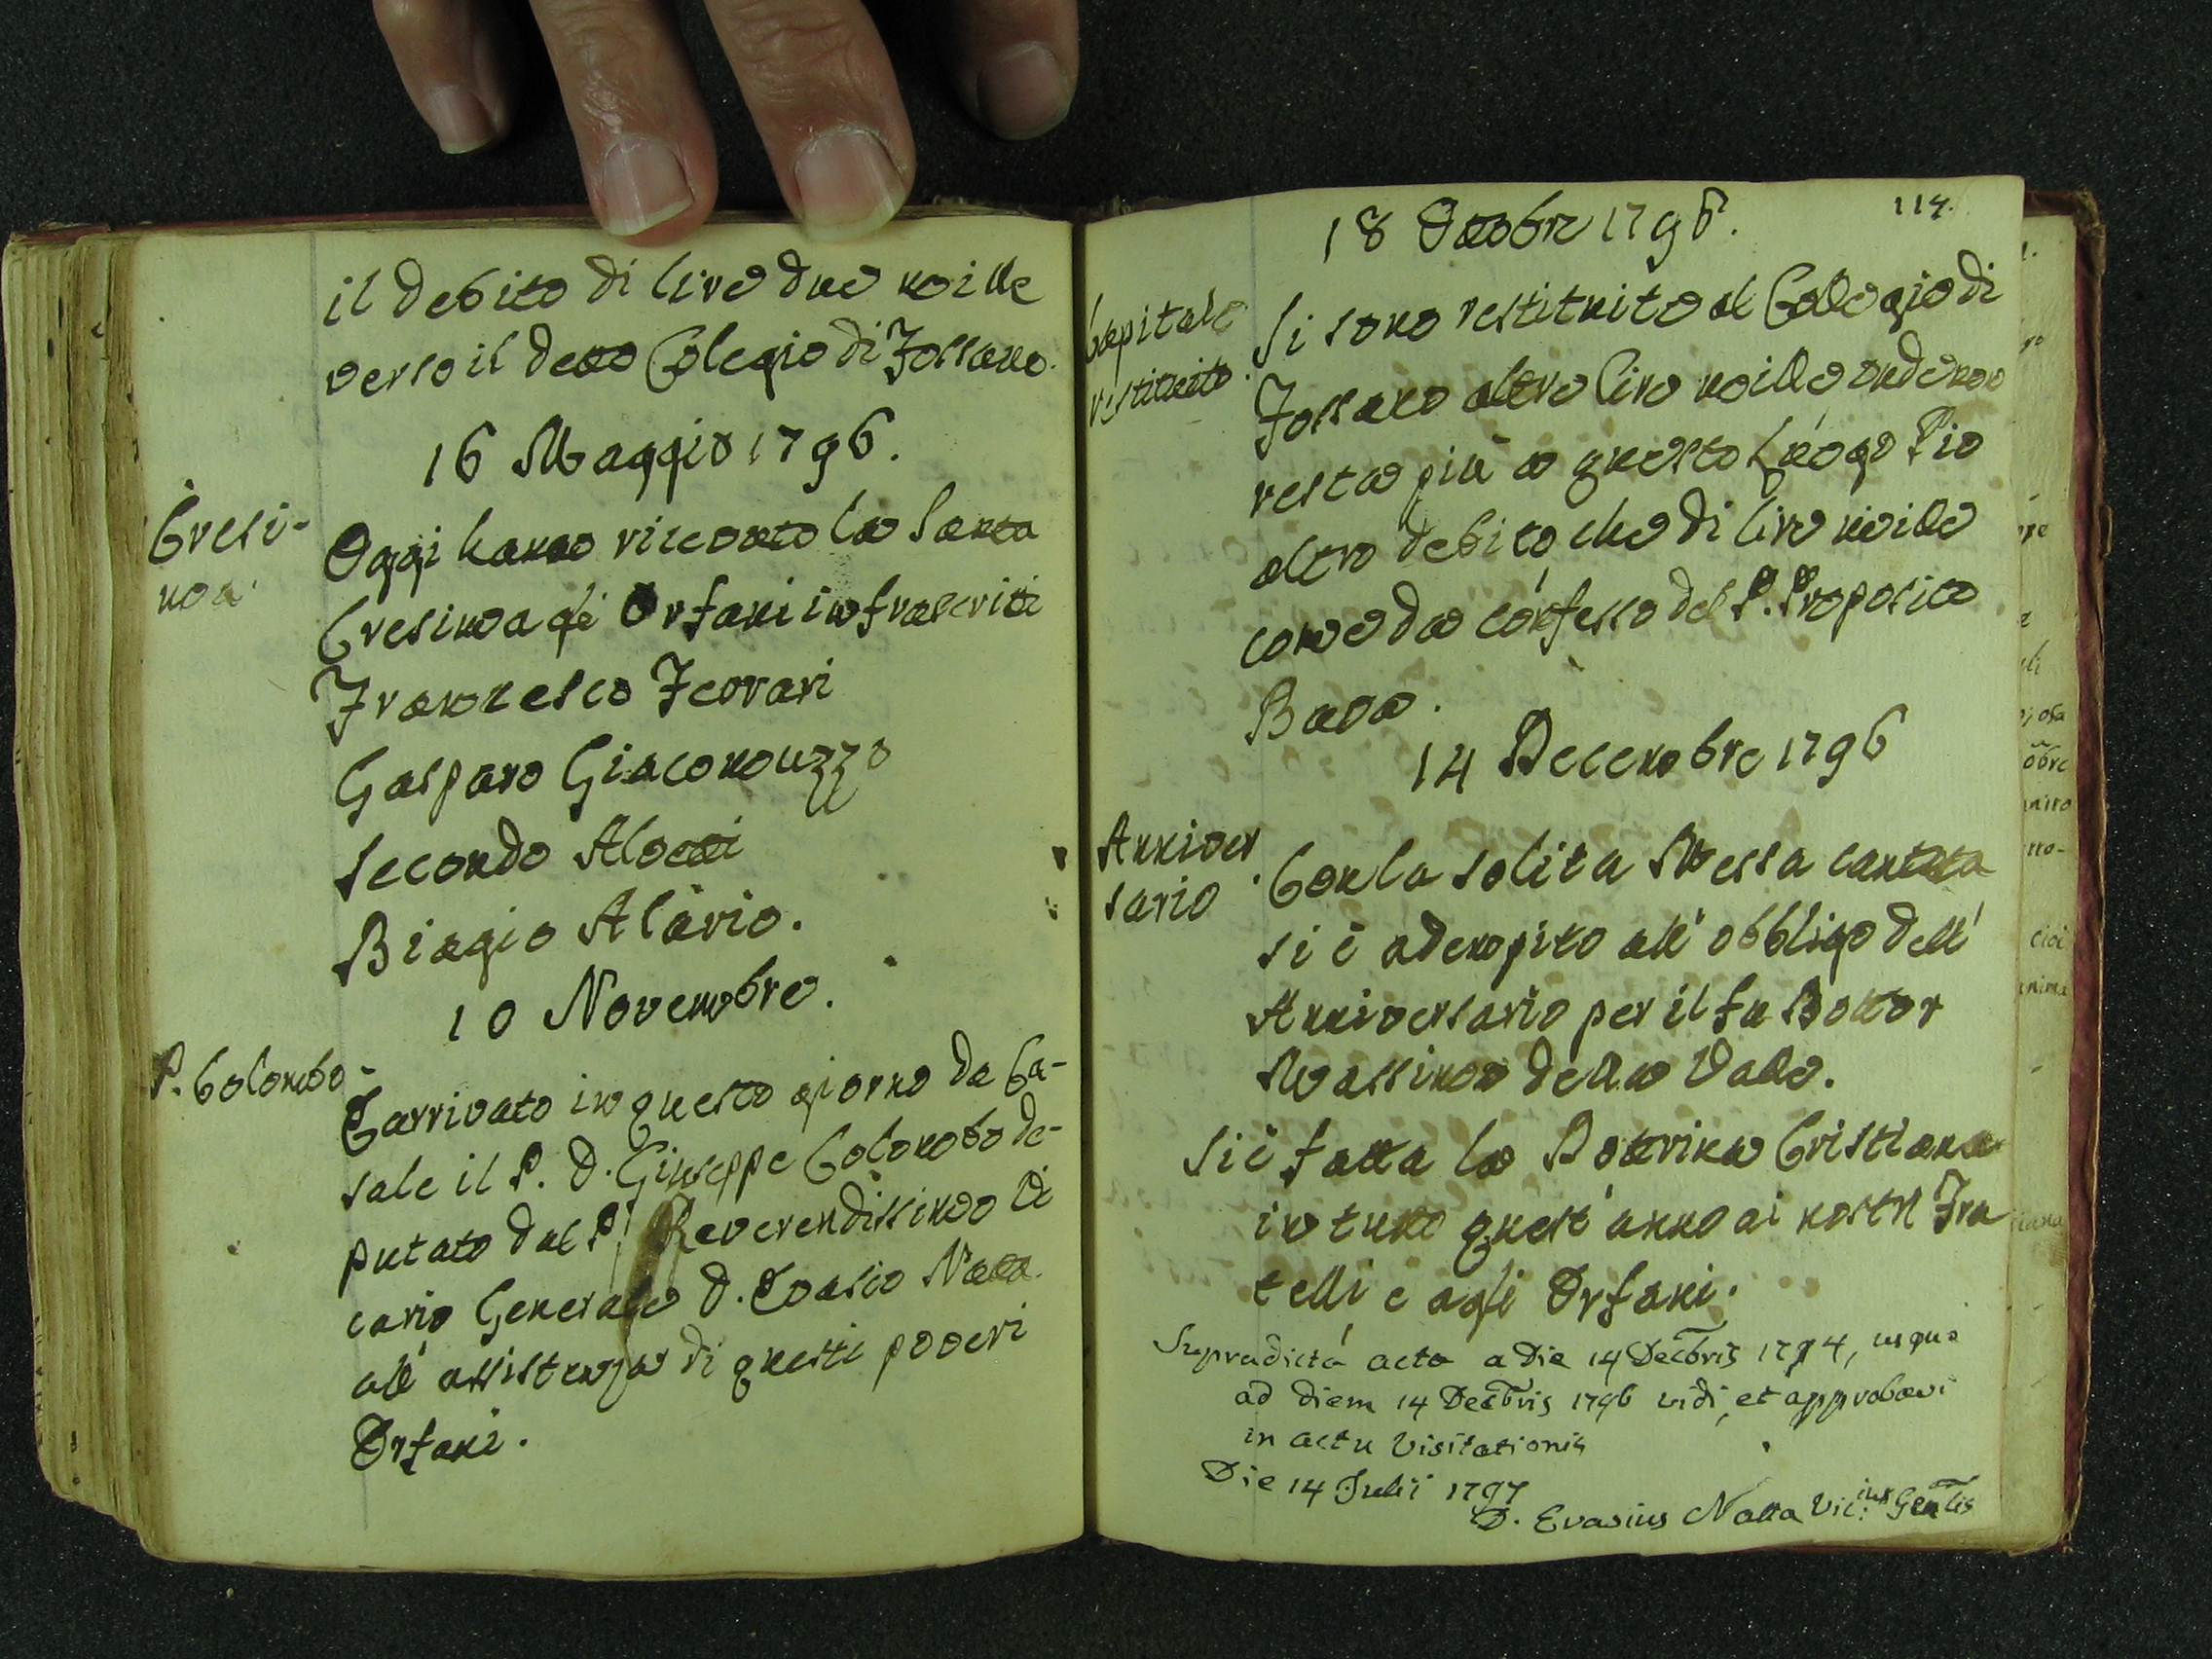 il debito di lire due mille
verso il detto Colegio di Fossano.
16 Maggio 1796.
Cresi-
ma.
Oggi hanno ricevuto la Santa
Cresima gli Orfani infrascritti
Francesco Ferrari
Gasparo Giacomuzzo
Secondo Alocati
Biagio Alario.
10 Novembre.
P. Colombo.
È arrivato in questo giorno da Ca-
sale il P. D. Giuseppe Colombo de-
putato dal P. Reverendissimo Vi
cario Generale D. Evasio Natta
all' assistenza di questi poveri
Orfani.
114.
18 Ottobre 1796.
Capitale
restituito.
Si sono restituite al Collegio di
Fossano altre lire mille onde non
resta più a questo Luogo Pio
altro debito che di lire mille
come da confesso del P. Proposito
Bava.
14 Decembre 1796
Anniver
sario.
Con la solita Messa cantata
si è adempito all' obbligo dell'
Anniversario per il fu Dottor
Massimo della Valle.
Si è fatta la Dottrina Cristiana
in tutto quest' anno ai nostri Fra
telli e agli Orfani.
Supradicta acta a die 14 Decbris 1794, usque
ad diem 14 Decbris 1796 vidi, et approbavi
in actu Visitationis
Die 14 Julii 1797
D. Evasius Natta Vic.ius Gen̅lis